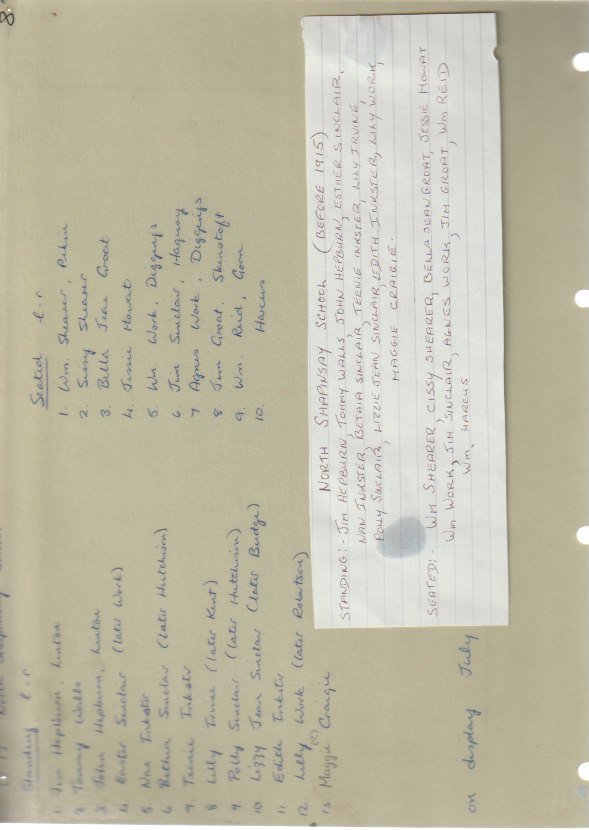 8
North Shapinsay School
Standing l-r.
1 Jim Hepburn, Linton
2 Tommy Walls
3 John Hepburn, Linton
4. Easter Sinclair (later Work)
5 Nan Inkster
6 Bethia Sinclair (later Hutchison)
7. Teenie Inkster
8. Lilly Irvine (later Kent)
9 Polly Sinclair (later Hutchison)
10 Lizzy Jean Sinclair (later Budge)
11 Edith Inkster
12 Lilly Work (later Robertson)
13 Maggie (?) Craigie
Seated l-r.
1. Wm. Shearer, Pekin
2. Sissy Shearer
3. Bella Jean Groat
4. Jessie Howat
5. Wm Work, Dygguys
6 Jim Sinclair, Haquoy
7. Agnes Work, Dygguys
8 Jim Groat, Skenstoft
9. Wm. Reid, Gorn
10. Harcus
on display July
NORTH SHAPINSAY SCHOOL (BEFORE 1915)
STANDING:- JIM HEPBURN, TOMMY WALLS, JOHN HEPBURN, ESTHER SINCLAIR,
NAN INKSTER, BETHIA SINCLAIR, TEENIE INKSTER, LILY IRVINE,
POLLY SINCLAIR, LIZZIE JEAN SINCLAIR, EDITH INKSTER, LILY WORK,
MAGGIE CRAIGIE
SEATED:- WM SHEARER, CISSY SHEARER, BELLA JEAN GROAT, JESSIE HOWAT
WM WORK, JIM SINCLAIR, AGNES WORK, JIM GROAT, WM REID
WM. HARCUS